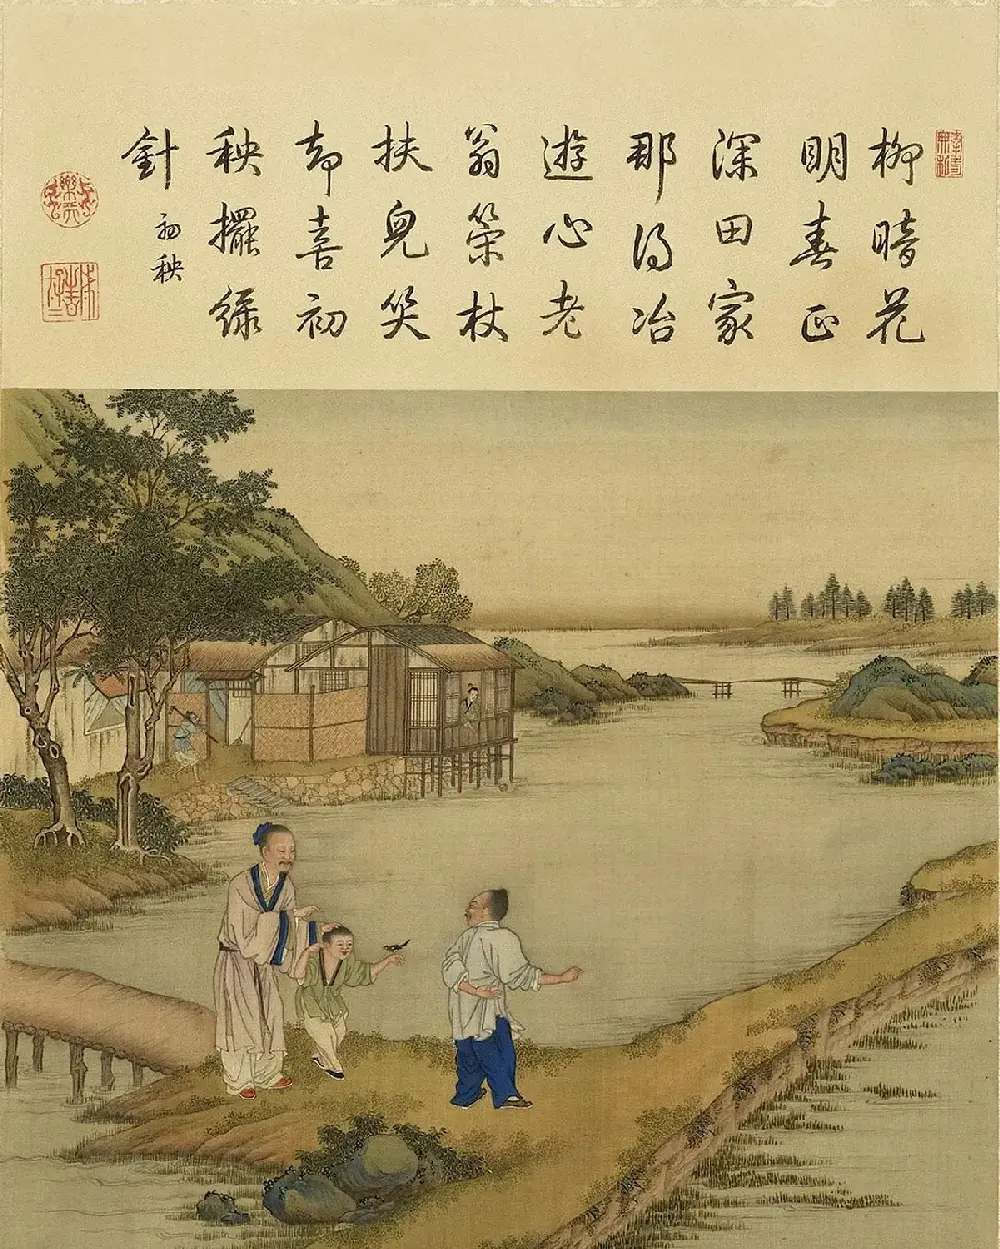 柳暗花
明春正
深田家
那得冶
遊心老
翁策杖
扶兒笑
却喜初
秧擺綠
針
初秧